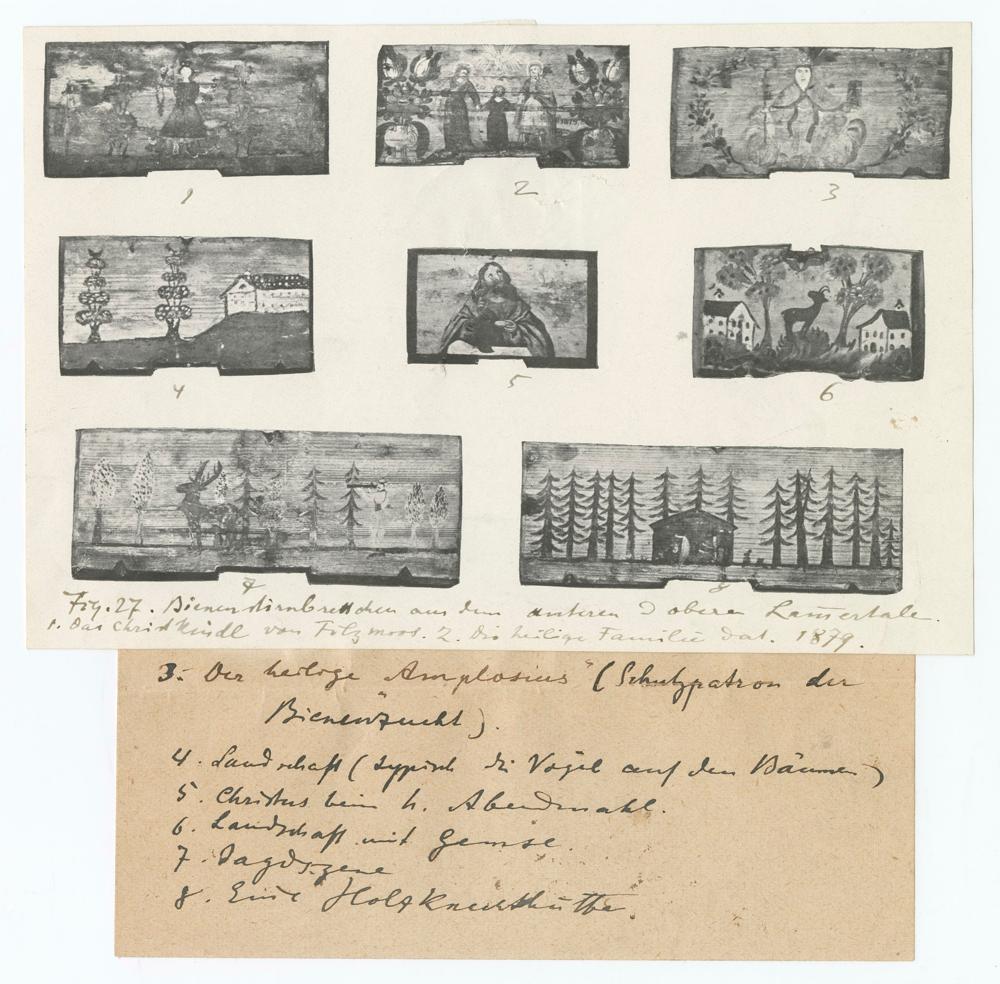 1
2
3
4
5
6
7
8
Fig. 27. Bienenstirnbrettchen aus dem unteren u. oberen Lam̅ertale.
1. Das Christkindl von Filzmoos. 2. Die heilige Familie dat. 1879.
3. Der heilige "Amplosius" (Schutzpatron der
Bienenzucht).
4. Landschaft (typisch die Vögel auf den Bäumen)
5. Christus beim h. Abendmahl.
6. Landschaft mit Gemse.
7. Jagdszene
8. Eine Holzknechthütte.